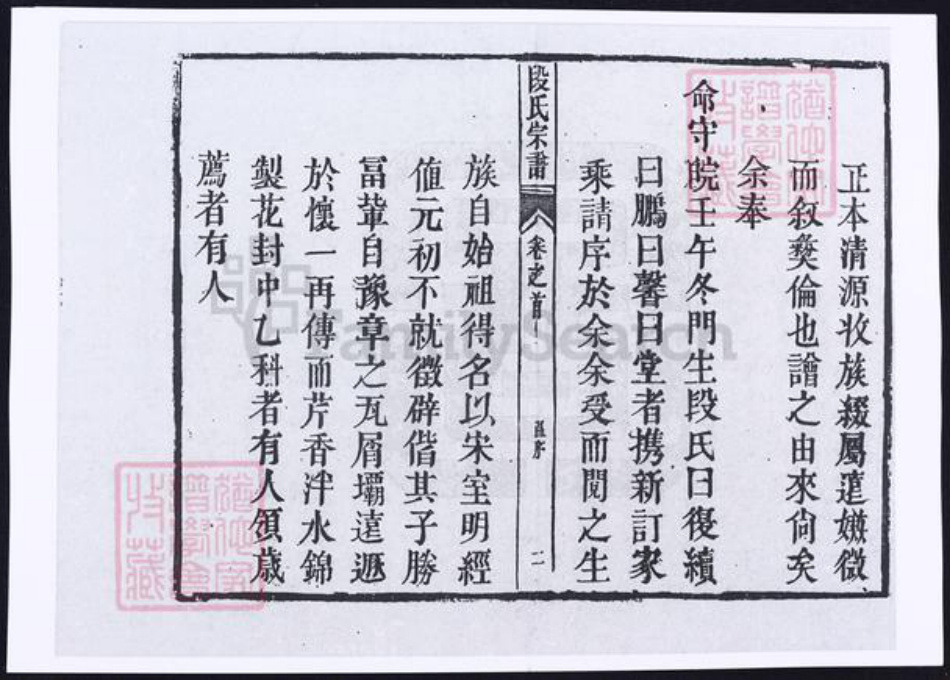 正本清源收族綴屬遠嫌微
而敘彝倫也譜之由來尙矣
余奉
命守皖壬午冬門生段氏曰復續
曰鵬曰馨曰堂者携新訂家
乘請序於余余受而閱之生
段氏宗譜 卷之首 舊序 二
族自始祖得名以宋室明經
值元初不就徵辟偕其子勝
冨輩自豫章之瓦屑壩遠遯
於懷一再傳而芹香泮水錦
製花封中乙科者有人領歲
薦者有人
FamilySearch